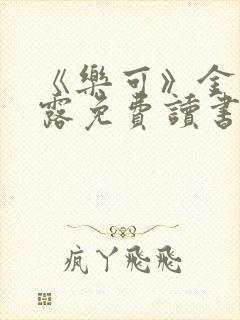 《樂可》全
露免費讀書
疯丫飛飛